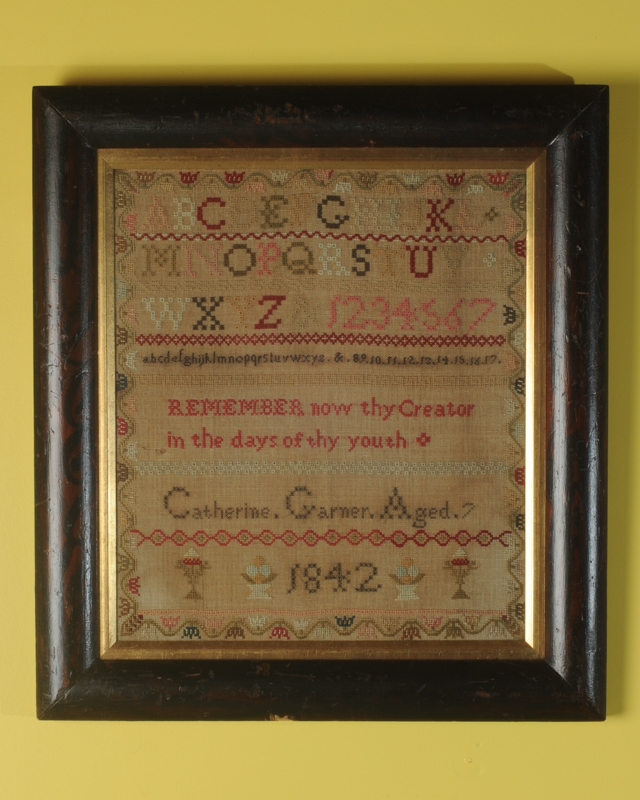 A B C D E F G H I K L
M N O P Q R S T U V
W X Y Z & 1 2 3 4 5 6 7
abcdefghijklmnopqrstuvwxyz. & . 8.9.10.11.12.13.14.15.16.17.
REMEMBER now thy Creator
in the days of thy youth
Catherine. Garner. Aged. 7
1842